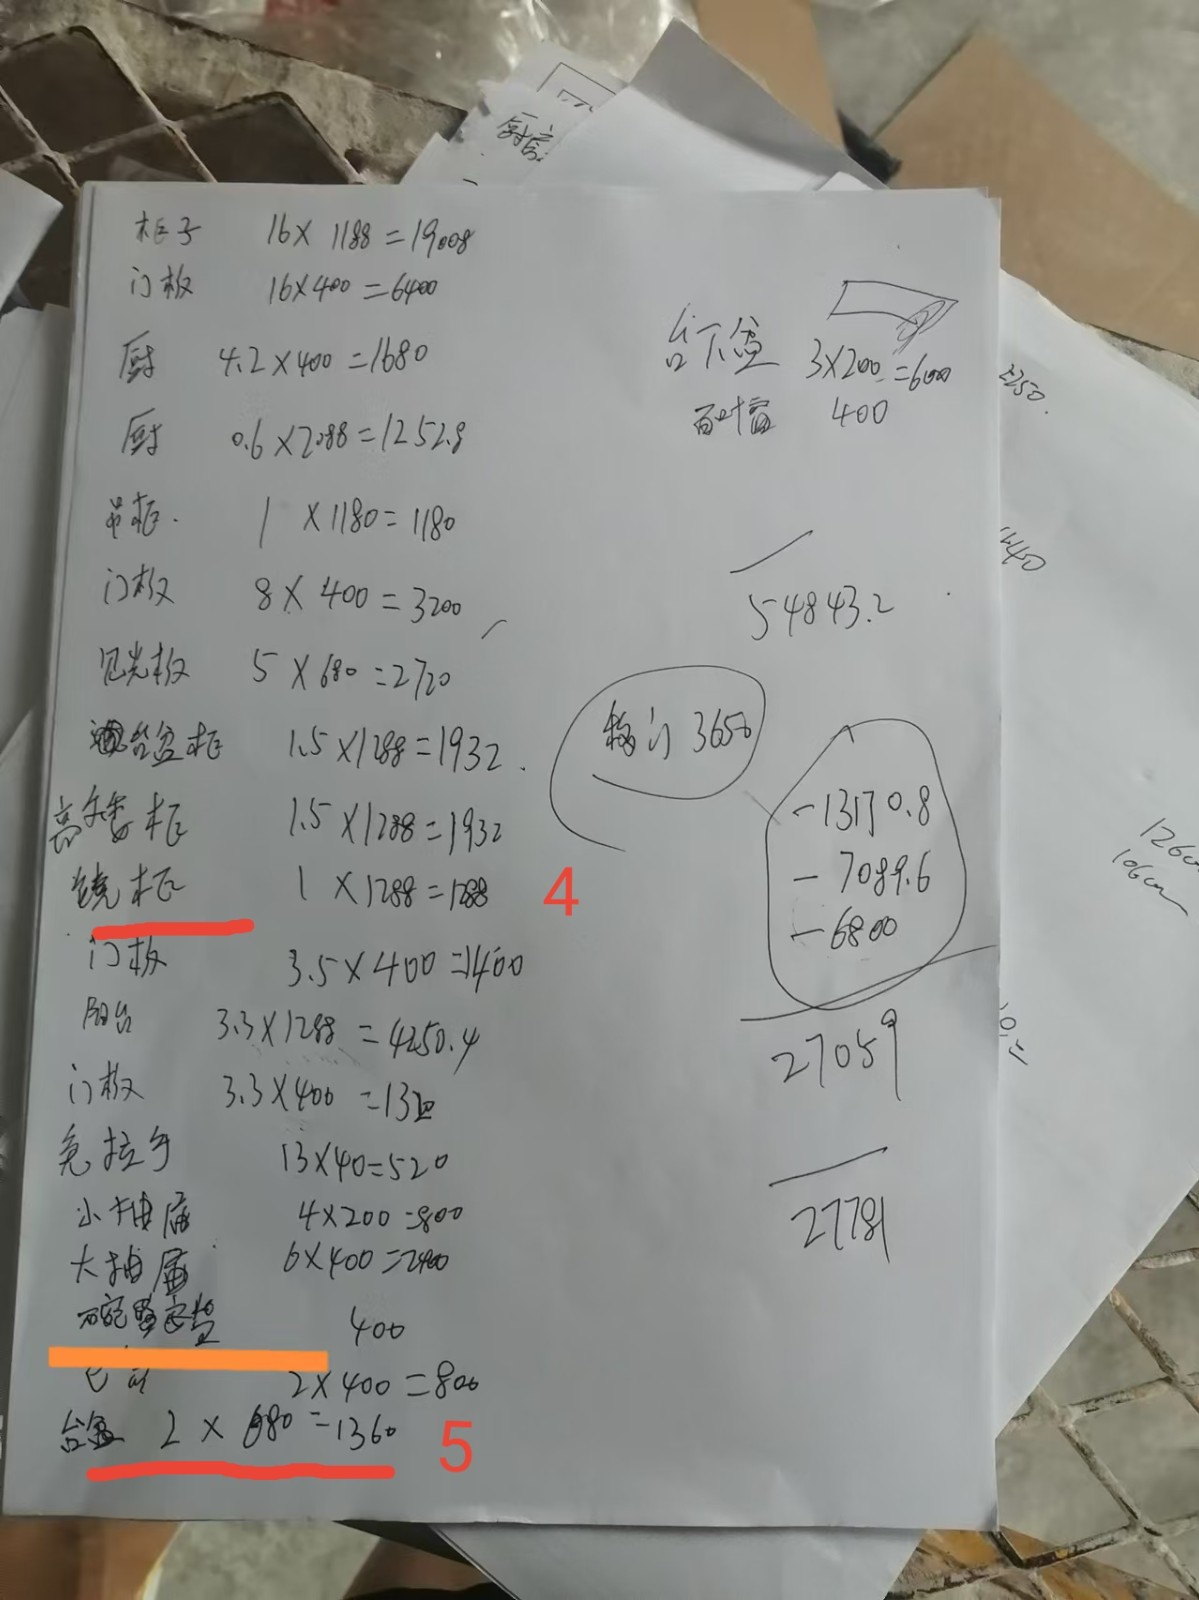 厨房
柜子 16×1188=19008
门板 16×400=6400
厨 4.2×400=1680
厨 0.6×2088=1252.8
吊柜. 1×1180=1180
门板 8×400=3200
见光板 5×680=2720
台盆柜 1.5×1288=1932.
高矮柜 1.5×1288=1932
镜柜 1×1288=1288
4
门板 3.5×400=1400
阳台 3.3×1288=4250.4
门板 3.3×400=1320
免拉手 13×40=520
小抽屉 4×200=800
大抽屉 6×400=2400
400
2×400=800
台盆 2×680=1360
5
台下盆 3×200=600
百叶窗 400
54843.2
移门 3650
-13170.8
-7089.6
-6800
27059
27781
2250.
126cm
106cm